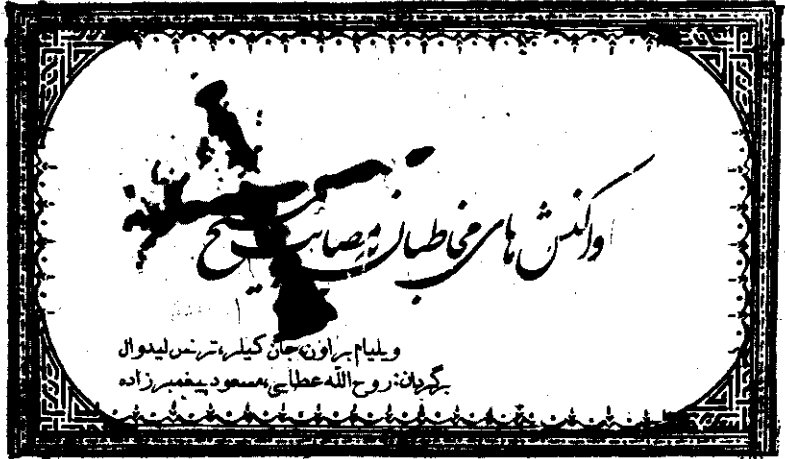 واکنش های مخاطبان به مصائب مسیح
ویلیام براون، جان کیلر، ترنس لیدوال
برگردان: روح الله عطایی، مسعود پیغمبرزاده